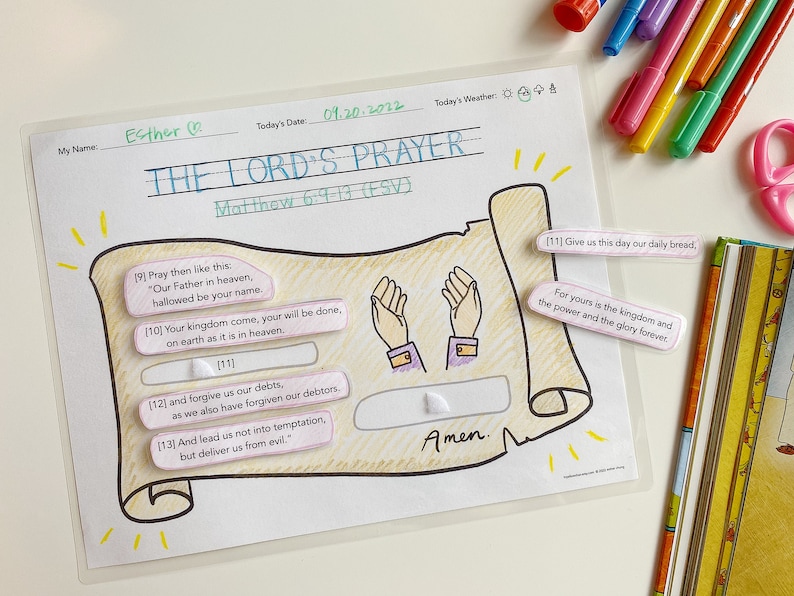 My Name: Esther
Today's Date: 09.20.2022
Today's Weather:
THE LORD'S PRAYER
Matthew 6:9-13 (ESV)
[9] Pray then like this:
"Our Father in heaven,
hallowed be your name.
[10] Your kingdom come, your will be done,
on earth as it is in heaven.
[11]
[12] and forgive us our debts,
as we also have forgiven our debtors.
[13] And lead us not into temptation,
but deliver us from evil."
Amen.
[11] Give us this day our daily bread,
For yours is the kingdom and
the power and the glory forever.